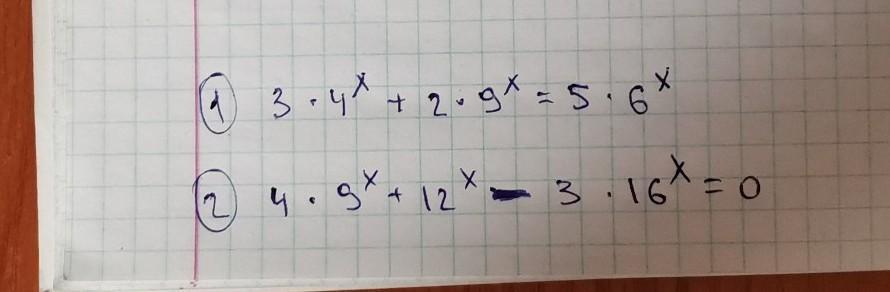 ① 3 · 4^x + 2 · 9^x = 5 · 6^x
② 4 · 9^x + 12^x - 3 · 16^x = 0